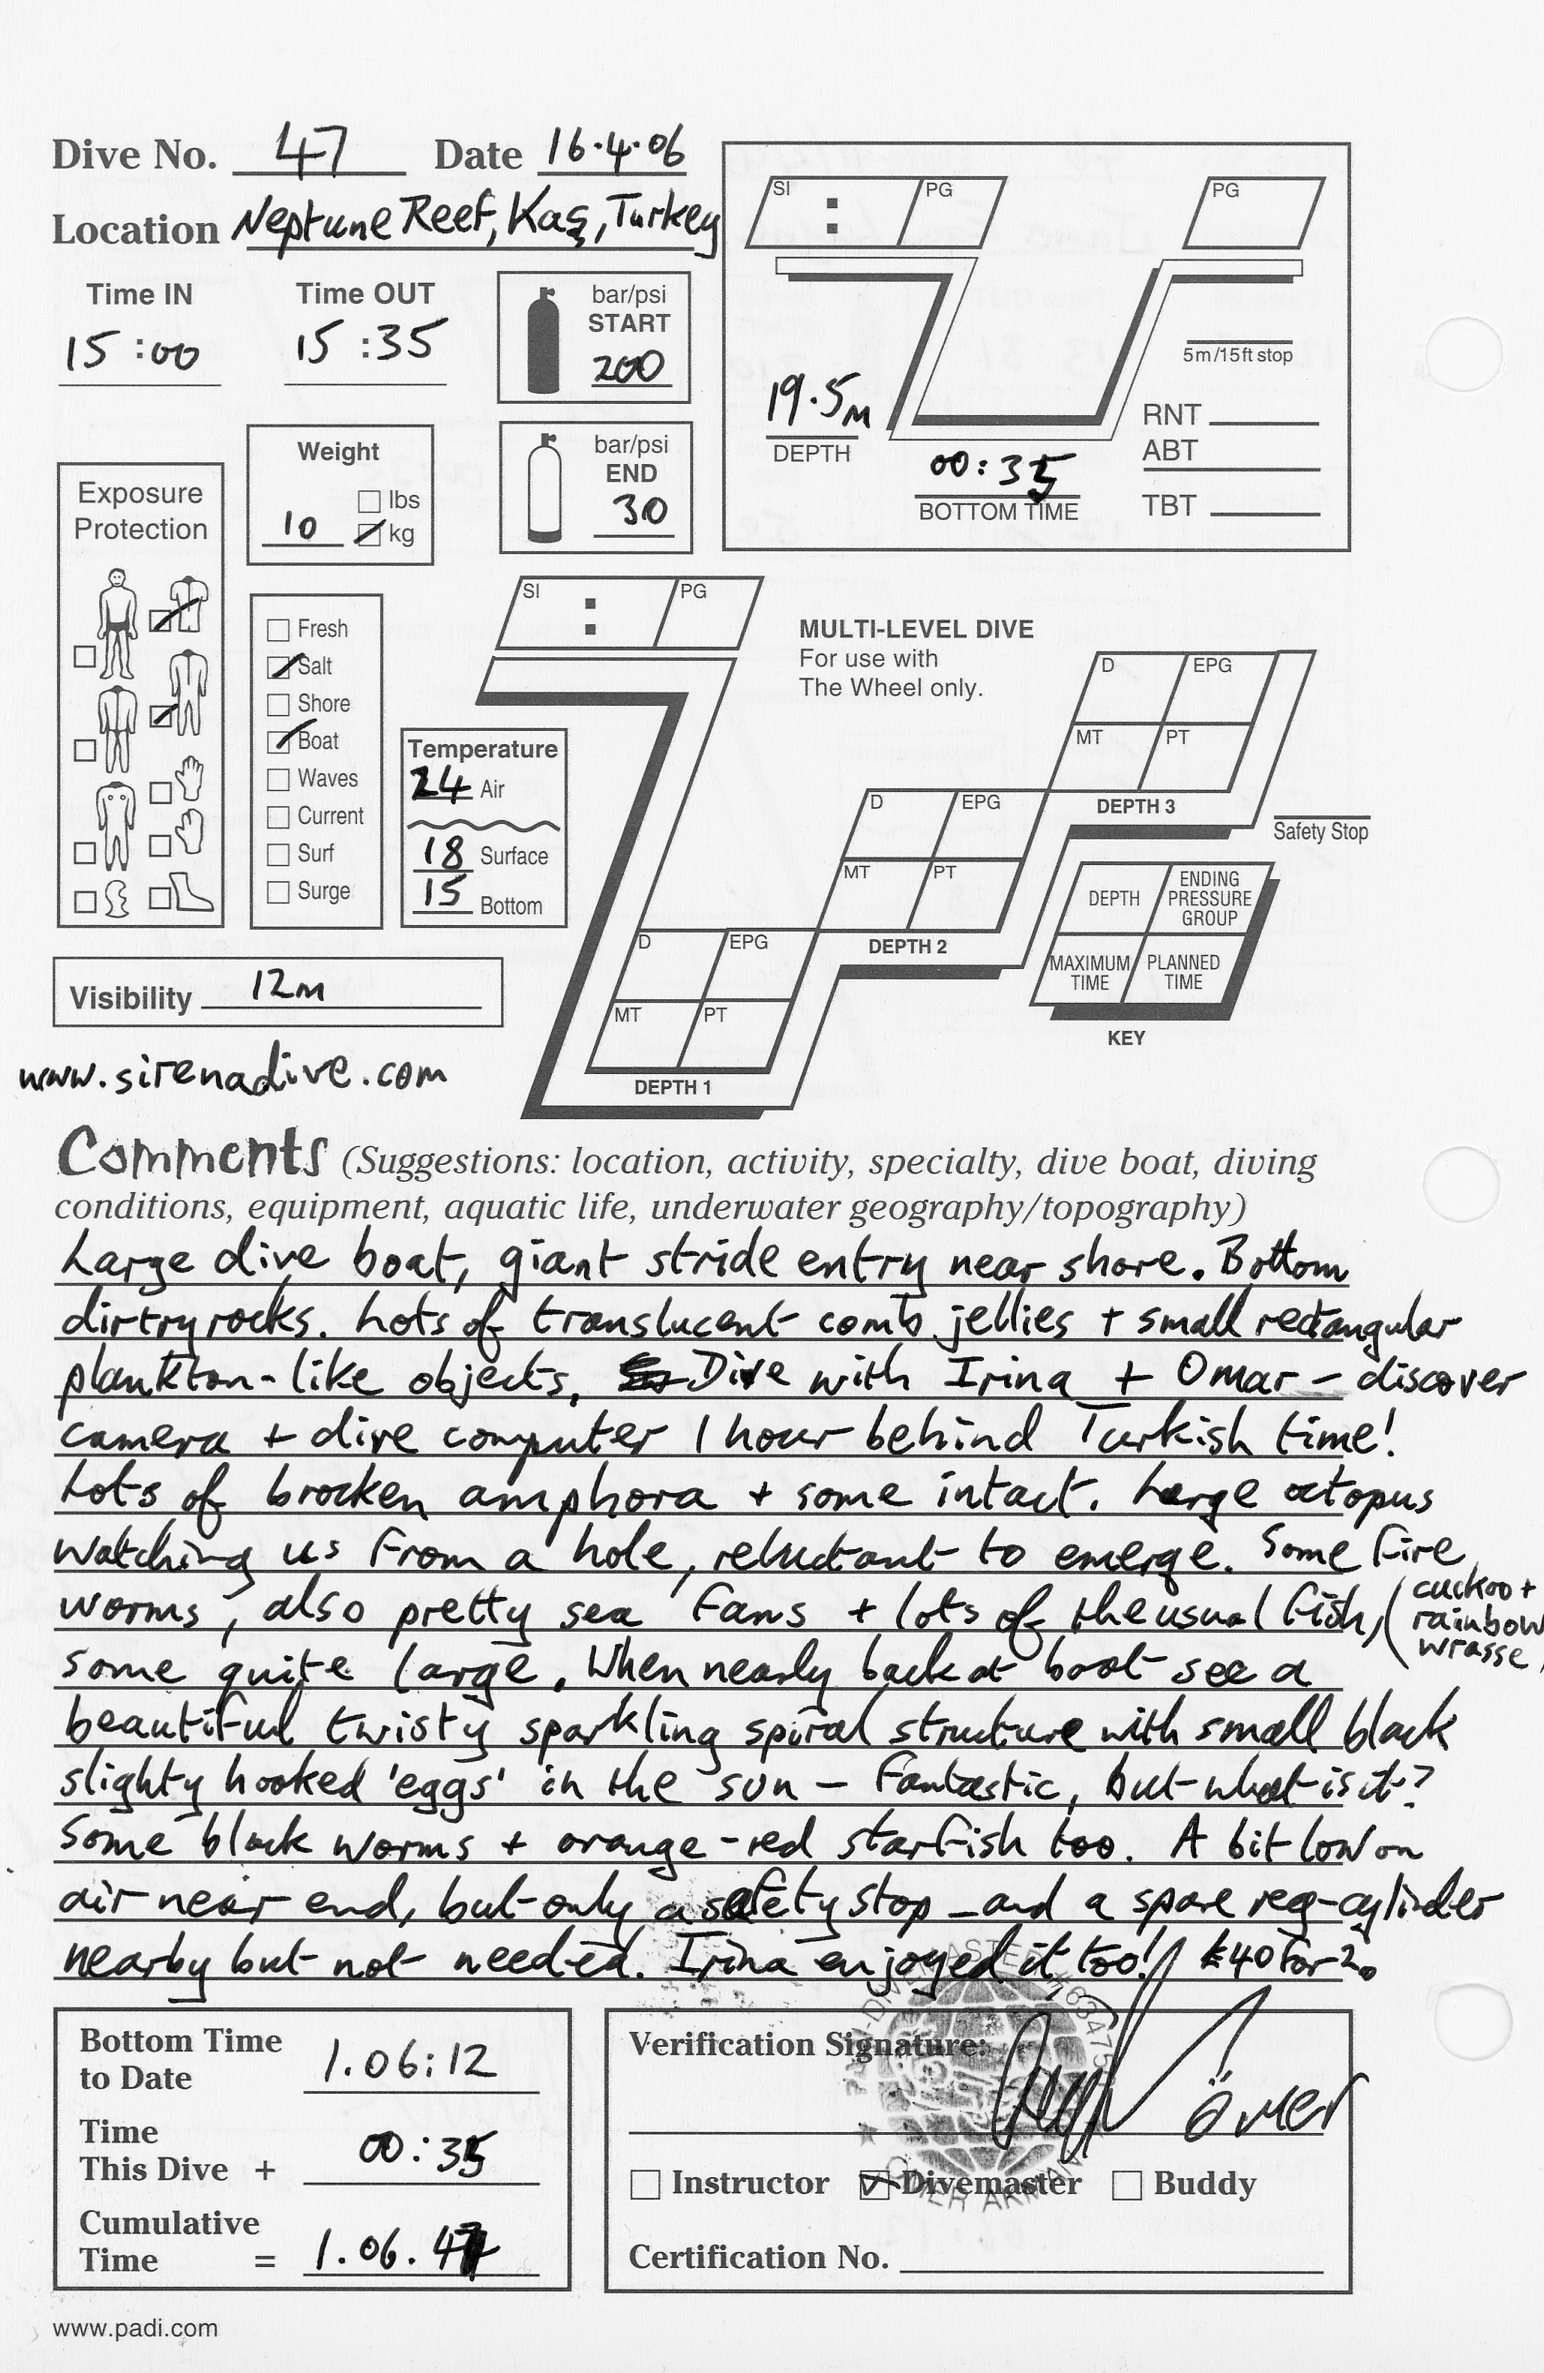 Dive No. 47 Date 16.4.06
Location Neptune Reef, Kaş, Turkey
Time IN Time OUT
15:00 15:35
bar/psi
START
200
bar/psi
END
30
Weight
lbs
10 kg
Exposure
Protection
Fresh
Salt
Shore
Boat
Waves
Current
Surf
Surge
Temperature
24 Air
18 Surface
15 Bottom
Visibility 12m
www.sirenadive.com
SI : PG
PG
5m/15ft stop
19.5m
DEPTH
00:35
BOTTOM TIME
RNT
ABT
TBT
SI : PG
MULTI-LEVEL DIVE
For use with
The Wheel only.
D EPG
MT PT
DEPTH 3
Safety Stop
D EPG
MT PT
DEPTH 2
D EPG
MT PT
DEPTH 1
DEPTH ENDING PRESSURE GROUP
MAXIMUM TIME PLANNED TIME
KEY
Comments (Suggestions: location, activity, specialty, dive boat, diving
conditions, equipment, aquatic life, underwater geography/topography)
Large dive boat, giant stride entry near shore. Bottom
dirtry rocks. Lots of translucent comb jellies + small rectangular
plankton-like objects. Dive with Irina + Omar - discover
camera + dive computer 1 hour behind Turkish time!
Lots of brocken amphora + some intact. Large octopus
watching us from a hole, reluctant to emerge. Some fire
worms, also pretty sea fans + lots of the usual fish, (cuckoo +
rainbow
wrasse)
some quite large. When nearly back at boat see a
beautiful twisty sparkling spiral structure with small black
slighty hooked 'eggs' in the sun - Fantastic, but what is it?
Some black worms + orange-red starfish too. A bit low on
air near end, but only a safety stop - and a spare reg-cylinder
nearby but not needed. Irina enjoyed it too! £40 for 2.
Bottom Time
to Date 1.06:12
Time
This Dive + 00:35
Cumulative
Time = 1.06.47
Verification Signature:
Ömer
Instructor Divemaster Buddy
Certification No.
www.padi.com